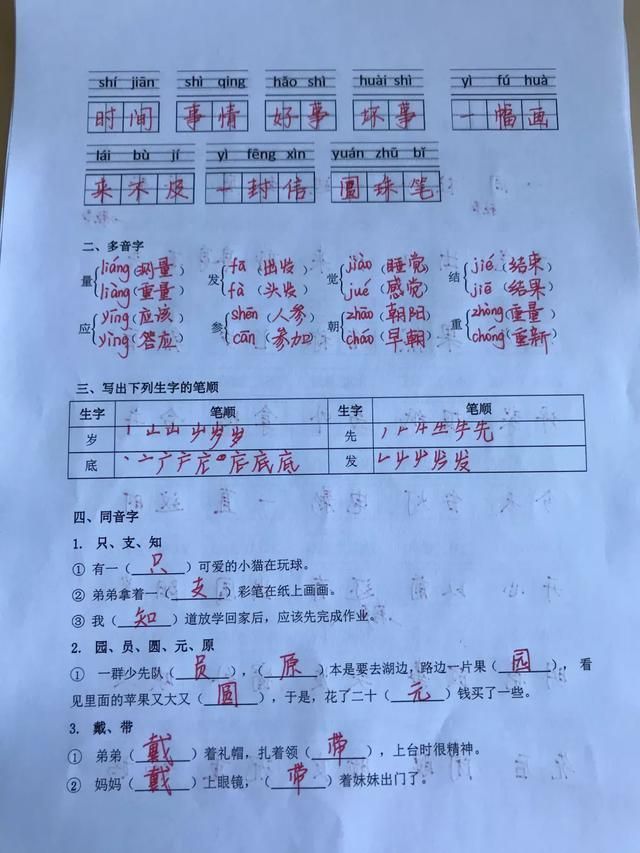 shí jiān shì qing hǎo shì huài shì yì fú huà
时间 事情 好事 坏事 一幅画
lái bù jí yì fēng xìn yuán zhū bǐ
来不及 一封信 圆珠笔
二、多音字
量 liáng(测量) 发 fā(出发) 觉 jiào(睡觉) 结 jié(结束)
liàng(重量) fà(头发) jué(感觉) jiē(结果)
应 yīng(应该) 参 shēn(人参) 朝 zhāo(朝阳) 重 zhòng(重量)
yìng(答应) cān(参加) cháo(早朝) chóng(重新)
三、写出下列生字的笔顺
生字 笔顺 生字 笔顺
岁 先
底 发
四、同音字
1. 只、支、知
① 有一(只)可爱的小猫在玩球。
② 弟弟拿着一(支)彩笔在纸上画画。
③ 我(知)道放学回家后，应该先完成作业。
2. 园、员、圆、元、原
① 一群少先队(员)，(原)本是要去湖边，路边一片果(园)，看
见里面的苹果又大又(圆)，于是，花了二十(元)钱买了一些。
3. 戴、带
① 弟弟(戴)着礼帽，扎着领(带)，上台时很精神。
② 妈妈(戴)上眼镜，(带)着妹妹出门了。